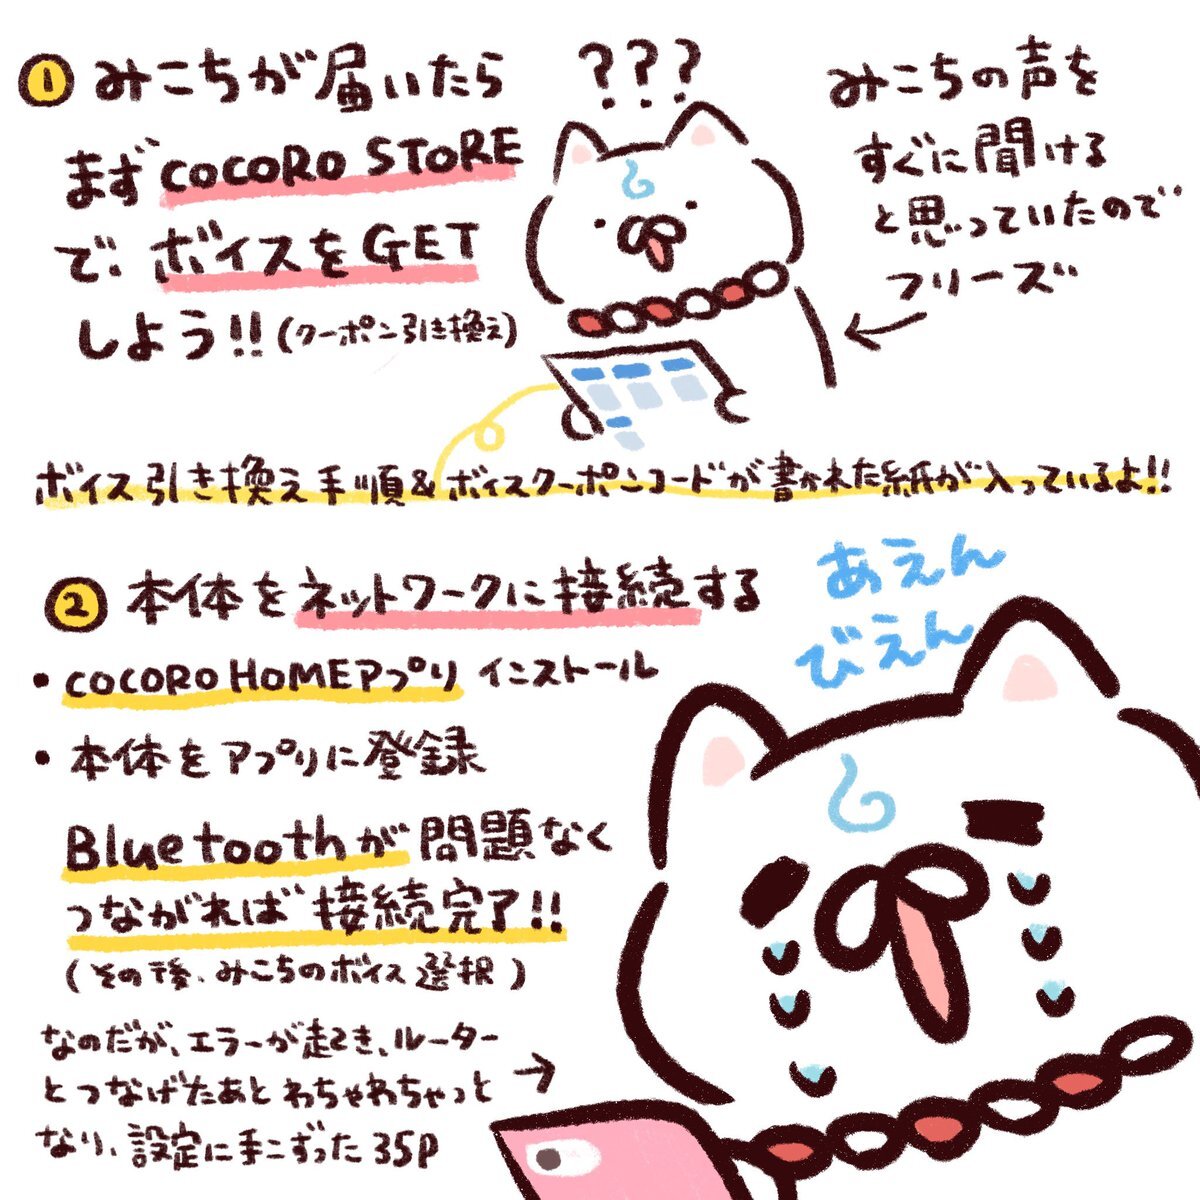 ① みこちが届いたら
まず COCORO STORE
で、ボイスをGET
しよう!!(クーポン引き換え)
???
みこちの声を
すぐに聞ける
と思っていたので
フリーズ
ボイス引き換え手順&ボイスクーポンコードが書かれた紙が入っているよ!!
② 本体をネットワークに接続する
・COCORO HOMEアプリ インストール
・本体をアプリに登録
Bluetoothが問題なく
つながれば接続完了!!
(その後、みこちのボイス選択)
なのだが、エラーが起き、ルーター
とつなげたあとわちゃわちゃっと
なり、設定に手こずった35P
あえん
びえん